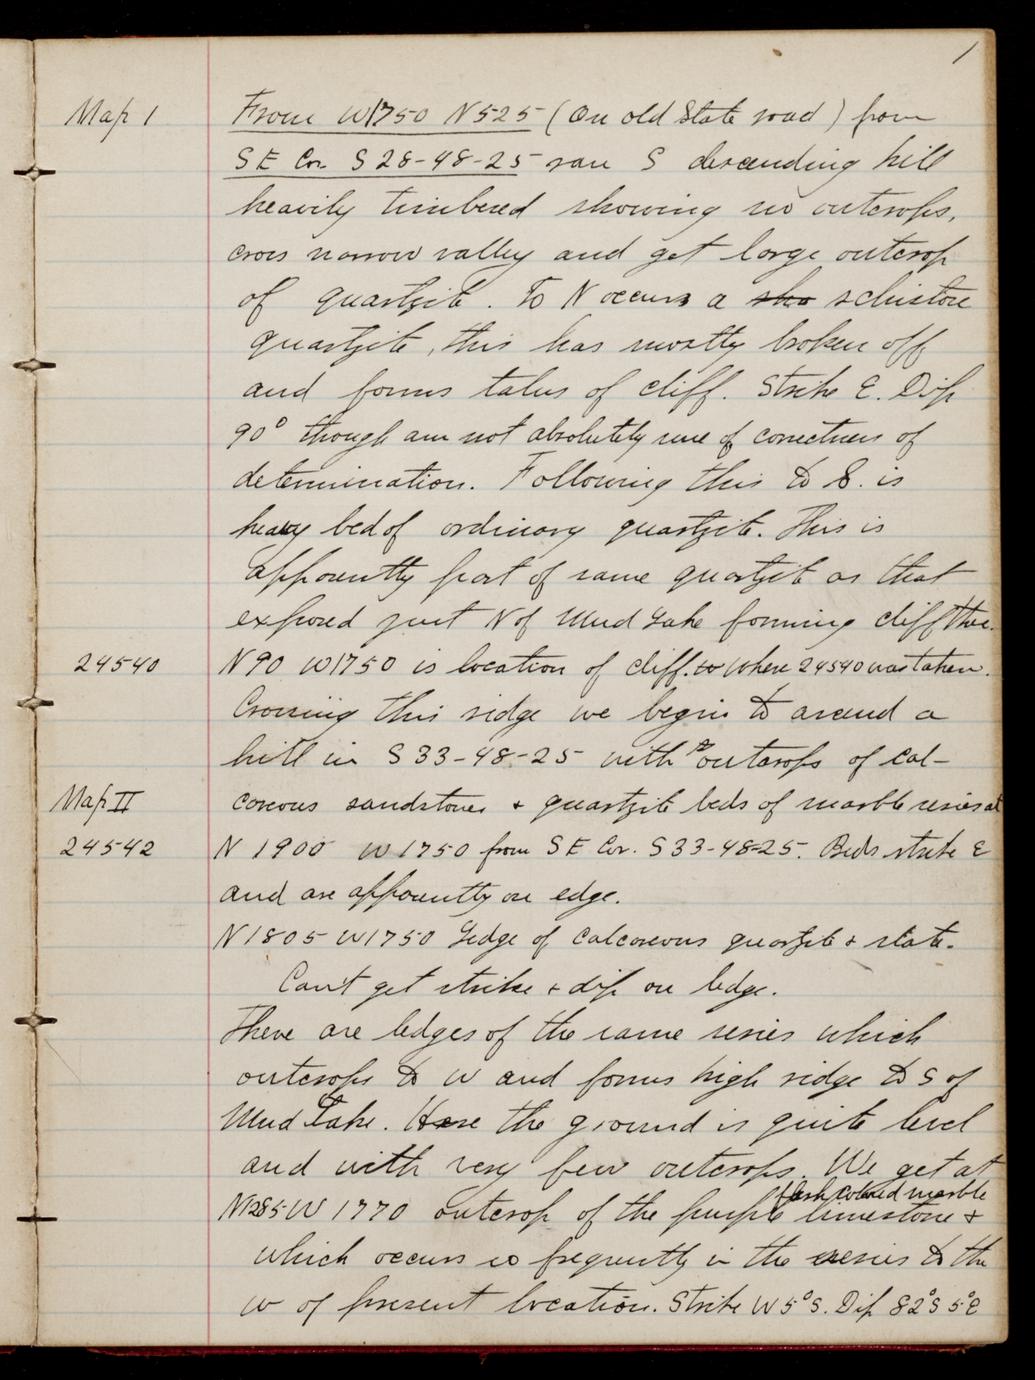 1
Map 1 From W1750 N525 (On old State road) from
S E Cor. S 28-48-25 ran S descending hill
heavily timbered showing no outcrops,
cross narrow valley and get large outcrop
of quartzite. To N occurs a sho schistose
quartzite, this has mostly broken off
and forms talus of cliff. Strike E. Dip
90° though am not absolutely sure of correctness of
determination. Following this to S. is
heavy bed of ordinary quartzite. This is
apparently part of same quartzite as that
exposed just N of Mud Lake forming cliff there.
24540 N90 W1750 is location of cliff. Where 24540 was taken.
Crossing this ridge we begin to ascend a
hill in S 33-48-25 with outcrops of cal-
Map II careous sandstones + quartzite beds of marble series at
24542 N 1900 W 1750 from S E Cor. S 33-48-25. Beds strike E
and are apparently on edge.
N1805 W1750 Ledge of Calcareous quartzite + slate.
Can't get strike + dip on ledge.
There are ledges of the same series which
outcrops to W and forms high ridge to S of
Mud Lake. Here the ground is quite level
and with very few outcrops. We get at
flesh colored marble
N1285 W 1770 outcrop of the purple limestone +
which occurs so frequently in the series to the
W of present location. Strike W 5° S. Dip 82° S 5° E